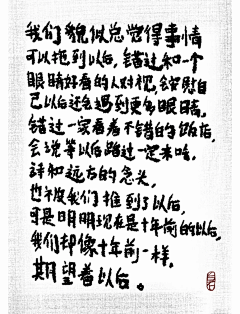 我们貌似总觉得事情
可以拖到以后，错过和一个
眼睛好看的人对视，安慰自
己以后还会遇到更多眼睛，
错过一家看着不错的饭店，
会说等以后路过一定来吃，
诗和远方的念头，
也被我们推到了以后，
可是明明现在是十年前的以后，
我们却像十年前一样，
期望着以后。